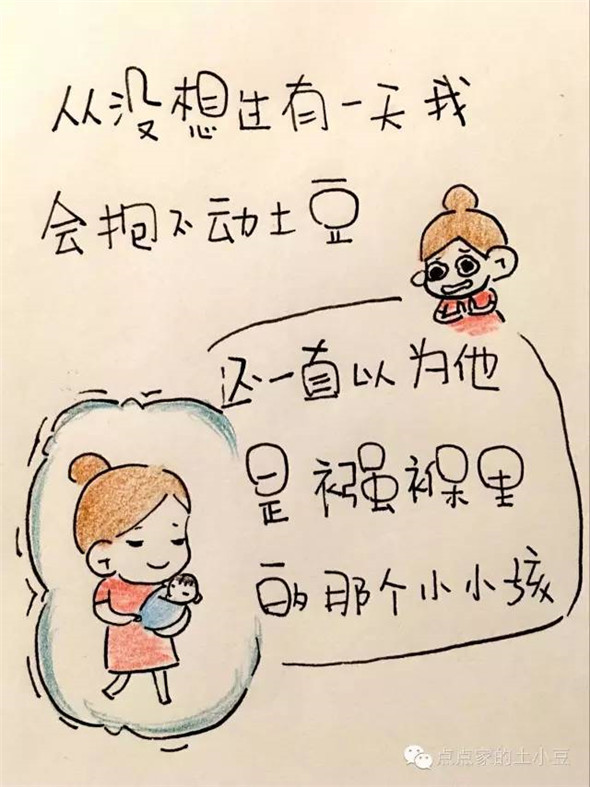 从没想过有一天我
会抱不动土豆
还一直以为他
是襁褓里
的那个小小孩
点点家的土小豆